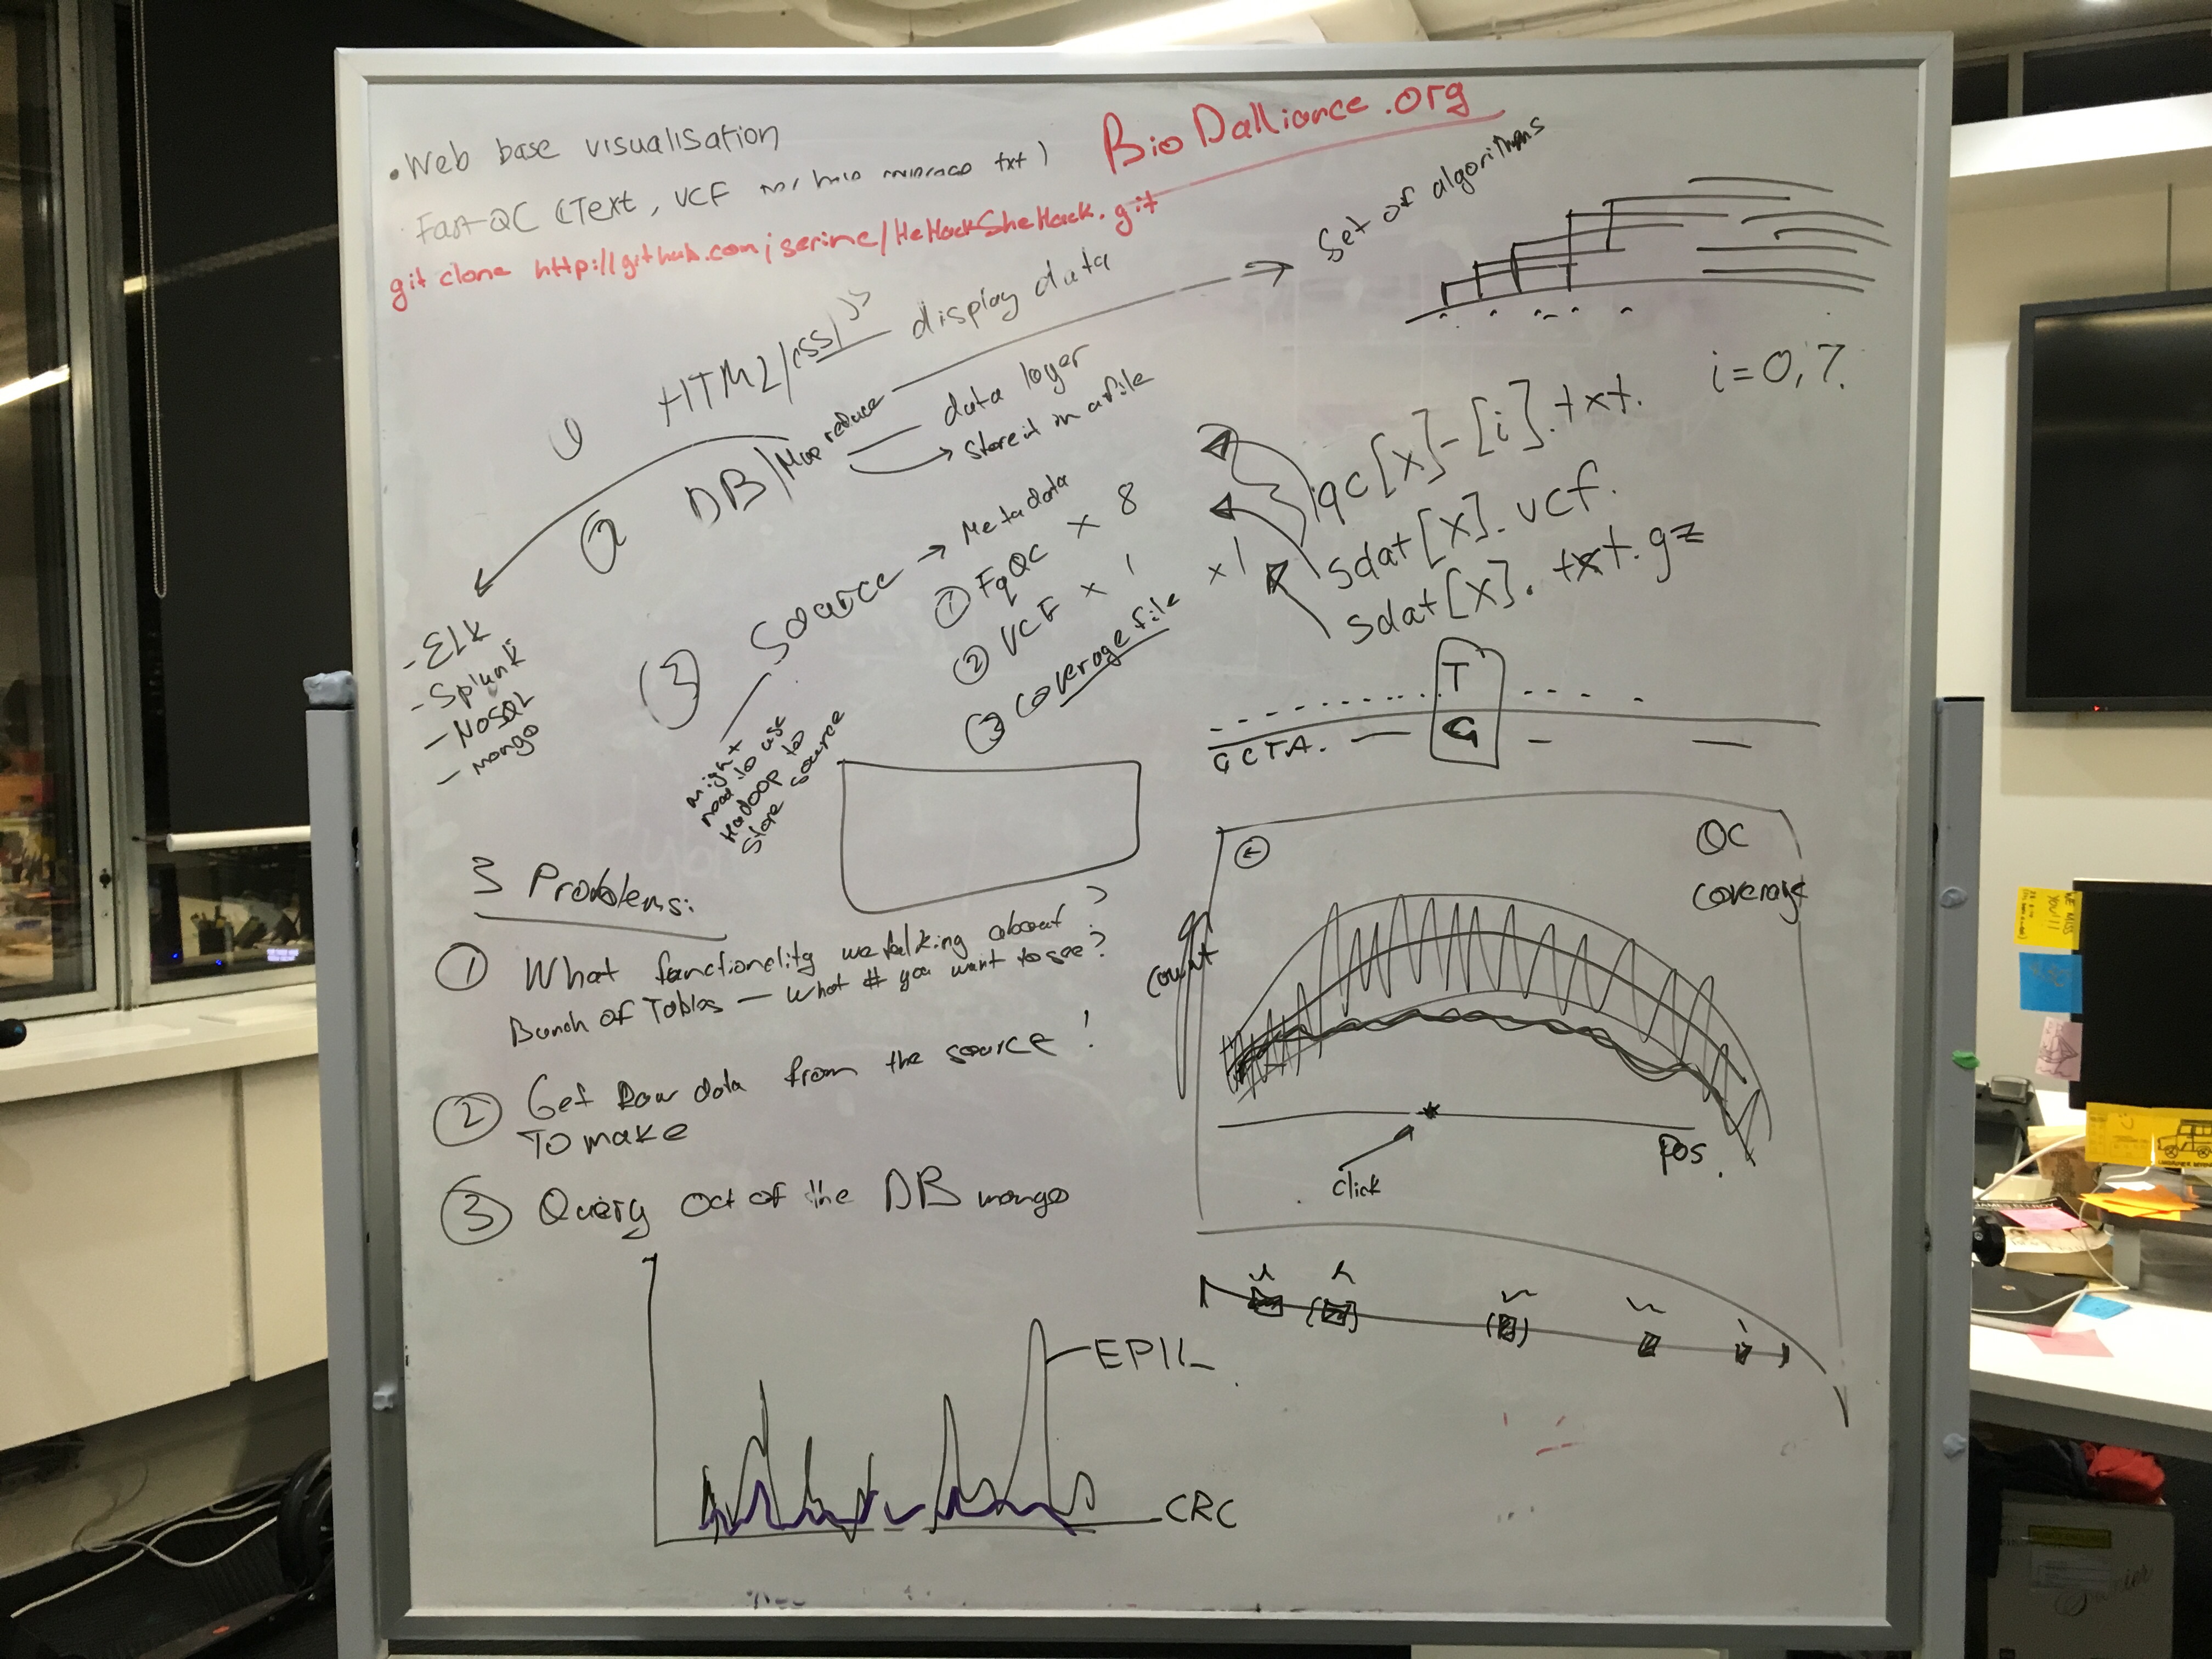 BioDalliance.org
• Web base visualisation
Fast-QC (Text, VCF txt)
git clone http://github.com/serine/HeHackSheHack.git
Set of algorithms
① HTML/CSS/JS — display data
② DB/Map reduce — data layer
Store it in a file
- ELK
- Splunk
- NoSQL
- mongo
③ Source → Metadata
① FqQC × 8
② VCF × 1
③ Coverage file × 1
might
need to use
Hadoop to
store source
qc[x]-[i].txt. i=0,7.
sdat[x].vcf.
sdat[x].txt.gz
T
G
GCTA.
3 Problems:
① What functionelity we talking about?
Bunch of Tables — What # you want to see?
② Get Raw data from the source!
To make
③ Query oct of the DB mongo
QC
coverage
count
Pos.
click
EPIL
CRC
WE MISS
YOU!!